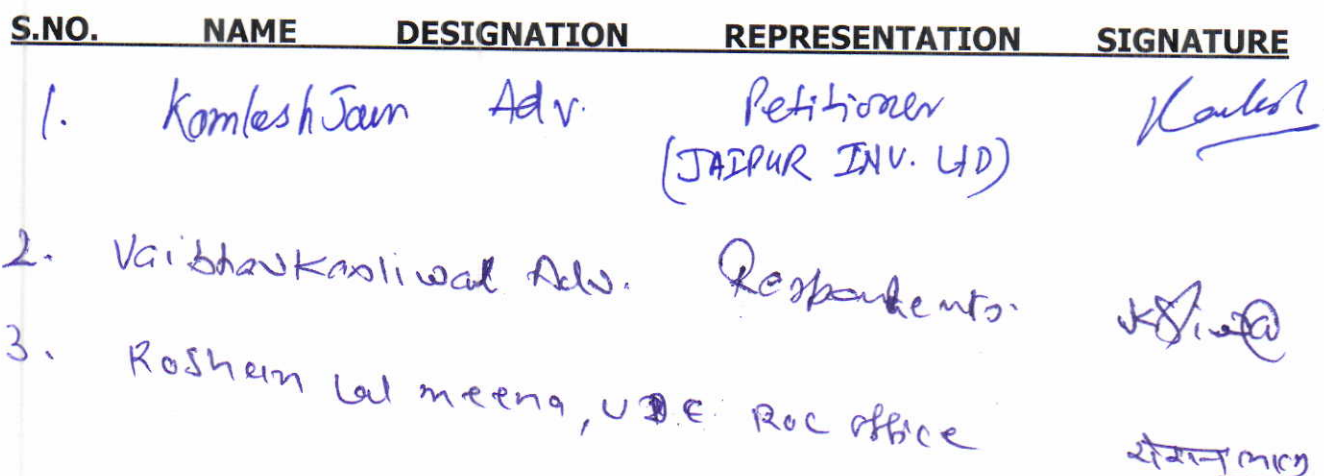 S.NO. NAME DESIGNATION REPRESENTATION SIGNATURE
1. Kamlesh Jain Adv. Petitioner
(JAIPUR INV. LTD)
2. Vaibhav Kasliwal Adv. Respondents.
3. Roshan Lal meena, UDC ROC office